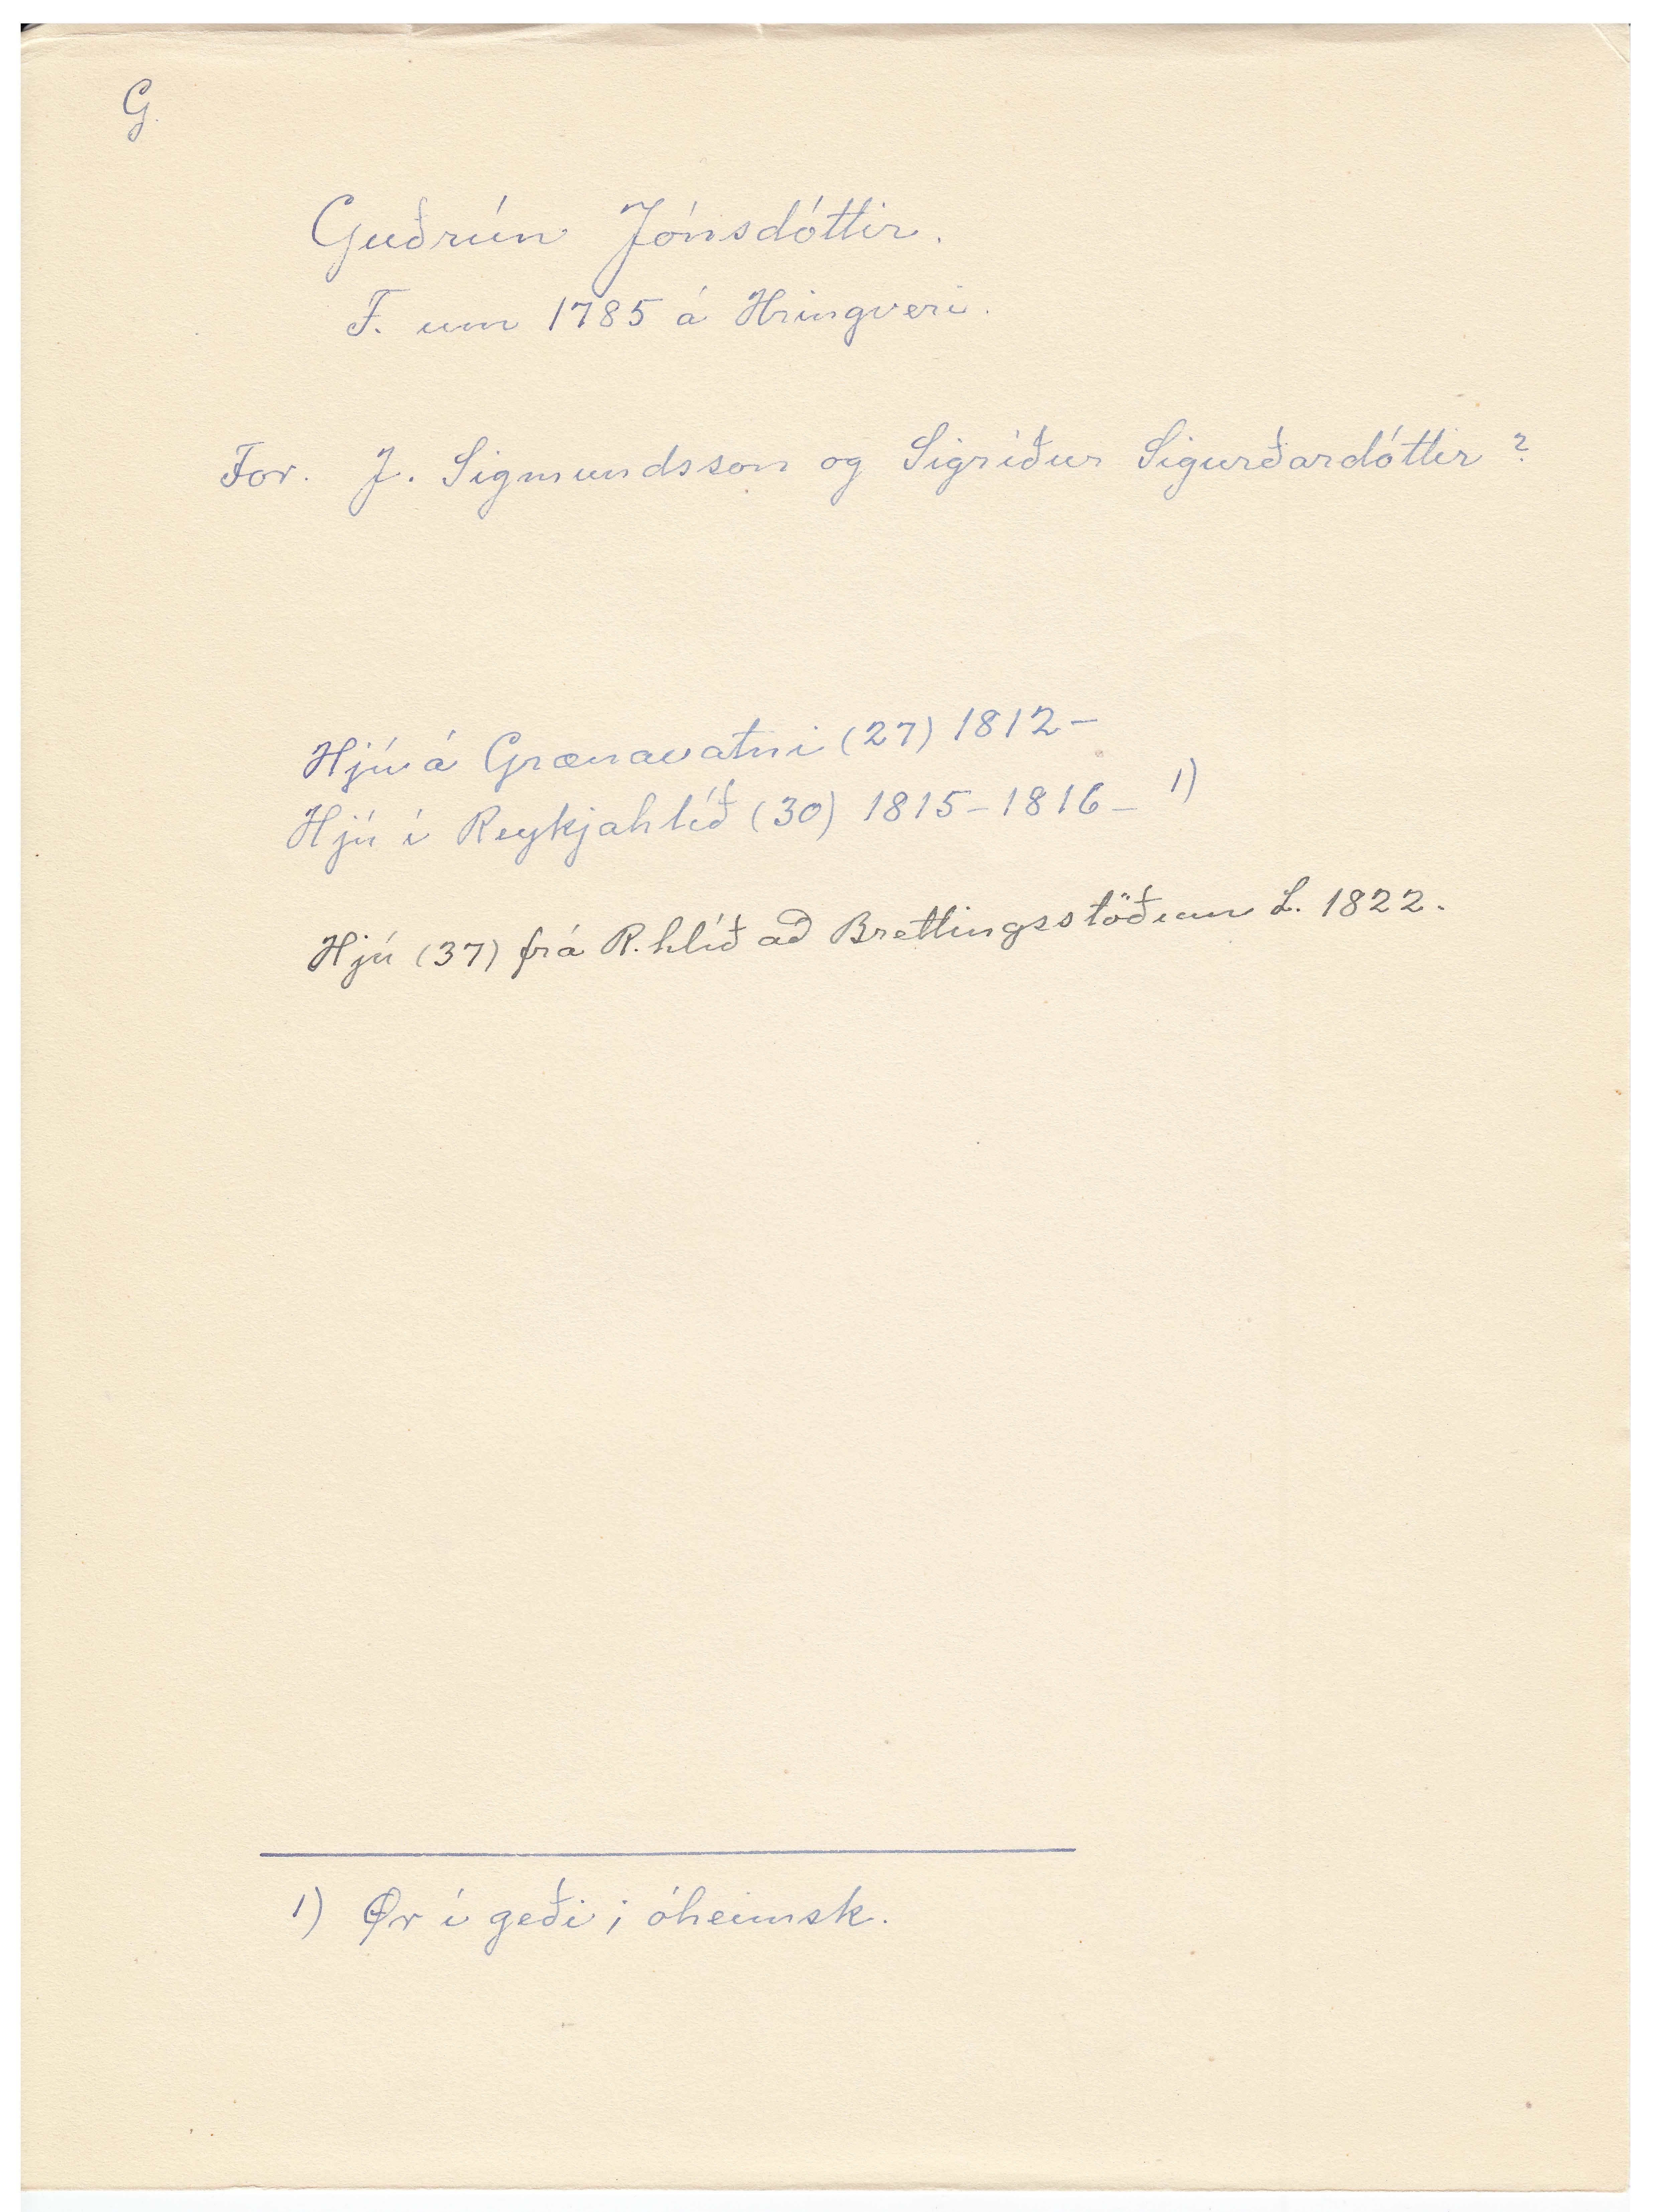 G.
Guðrún Jónsdóttir.
F. um 1785 á Hringveri.
For. J. Sigmundsson og Sigríður Sigurðardóttir?
Hjú á Grænavatni (27) 1812–
Hjú í Reykjahlíð (30) 1815–1816– 1)
Hjú (37) frá R.hlíð að Brettingsstöðum L. 1822.
1) Ør í geði; óheimsk.